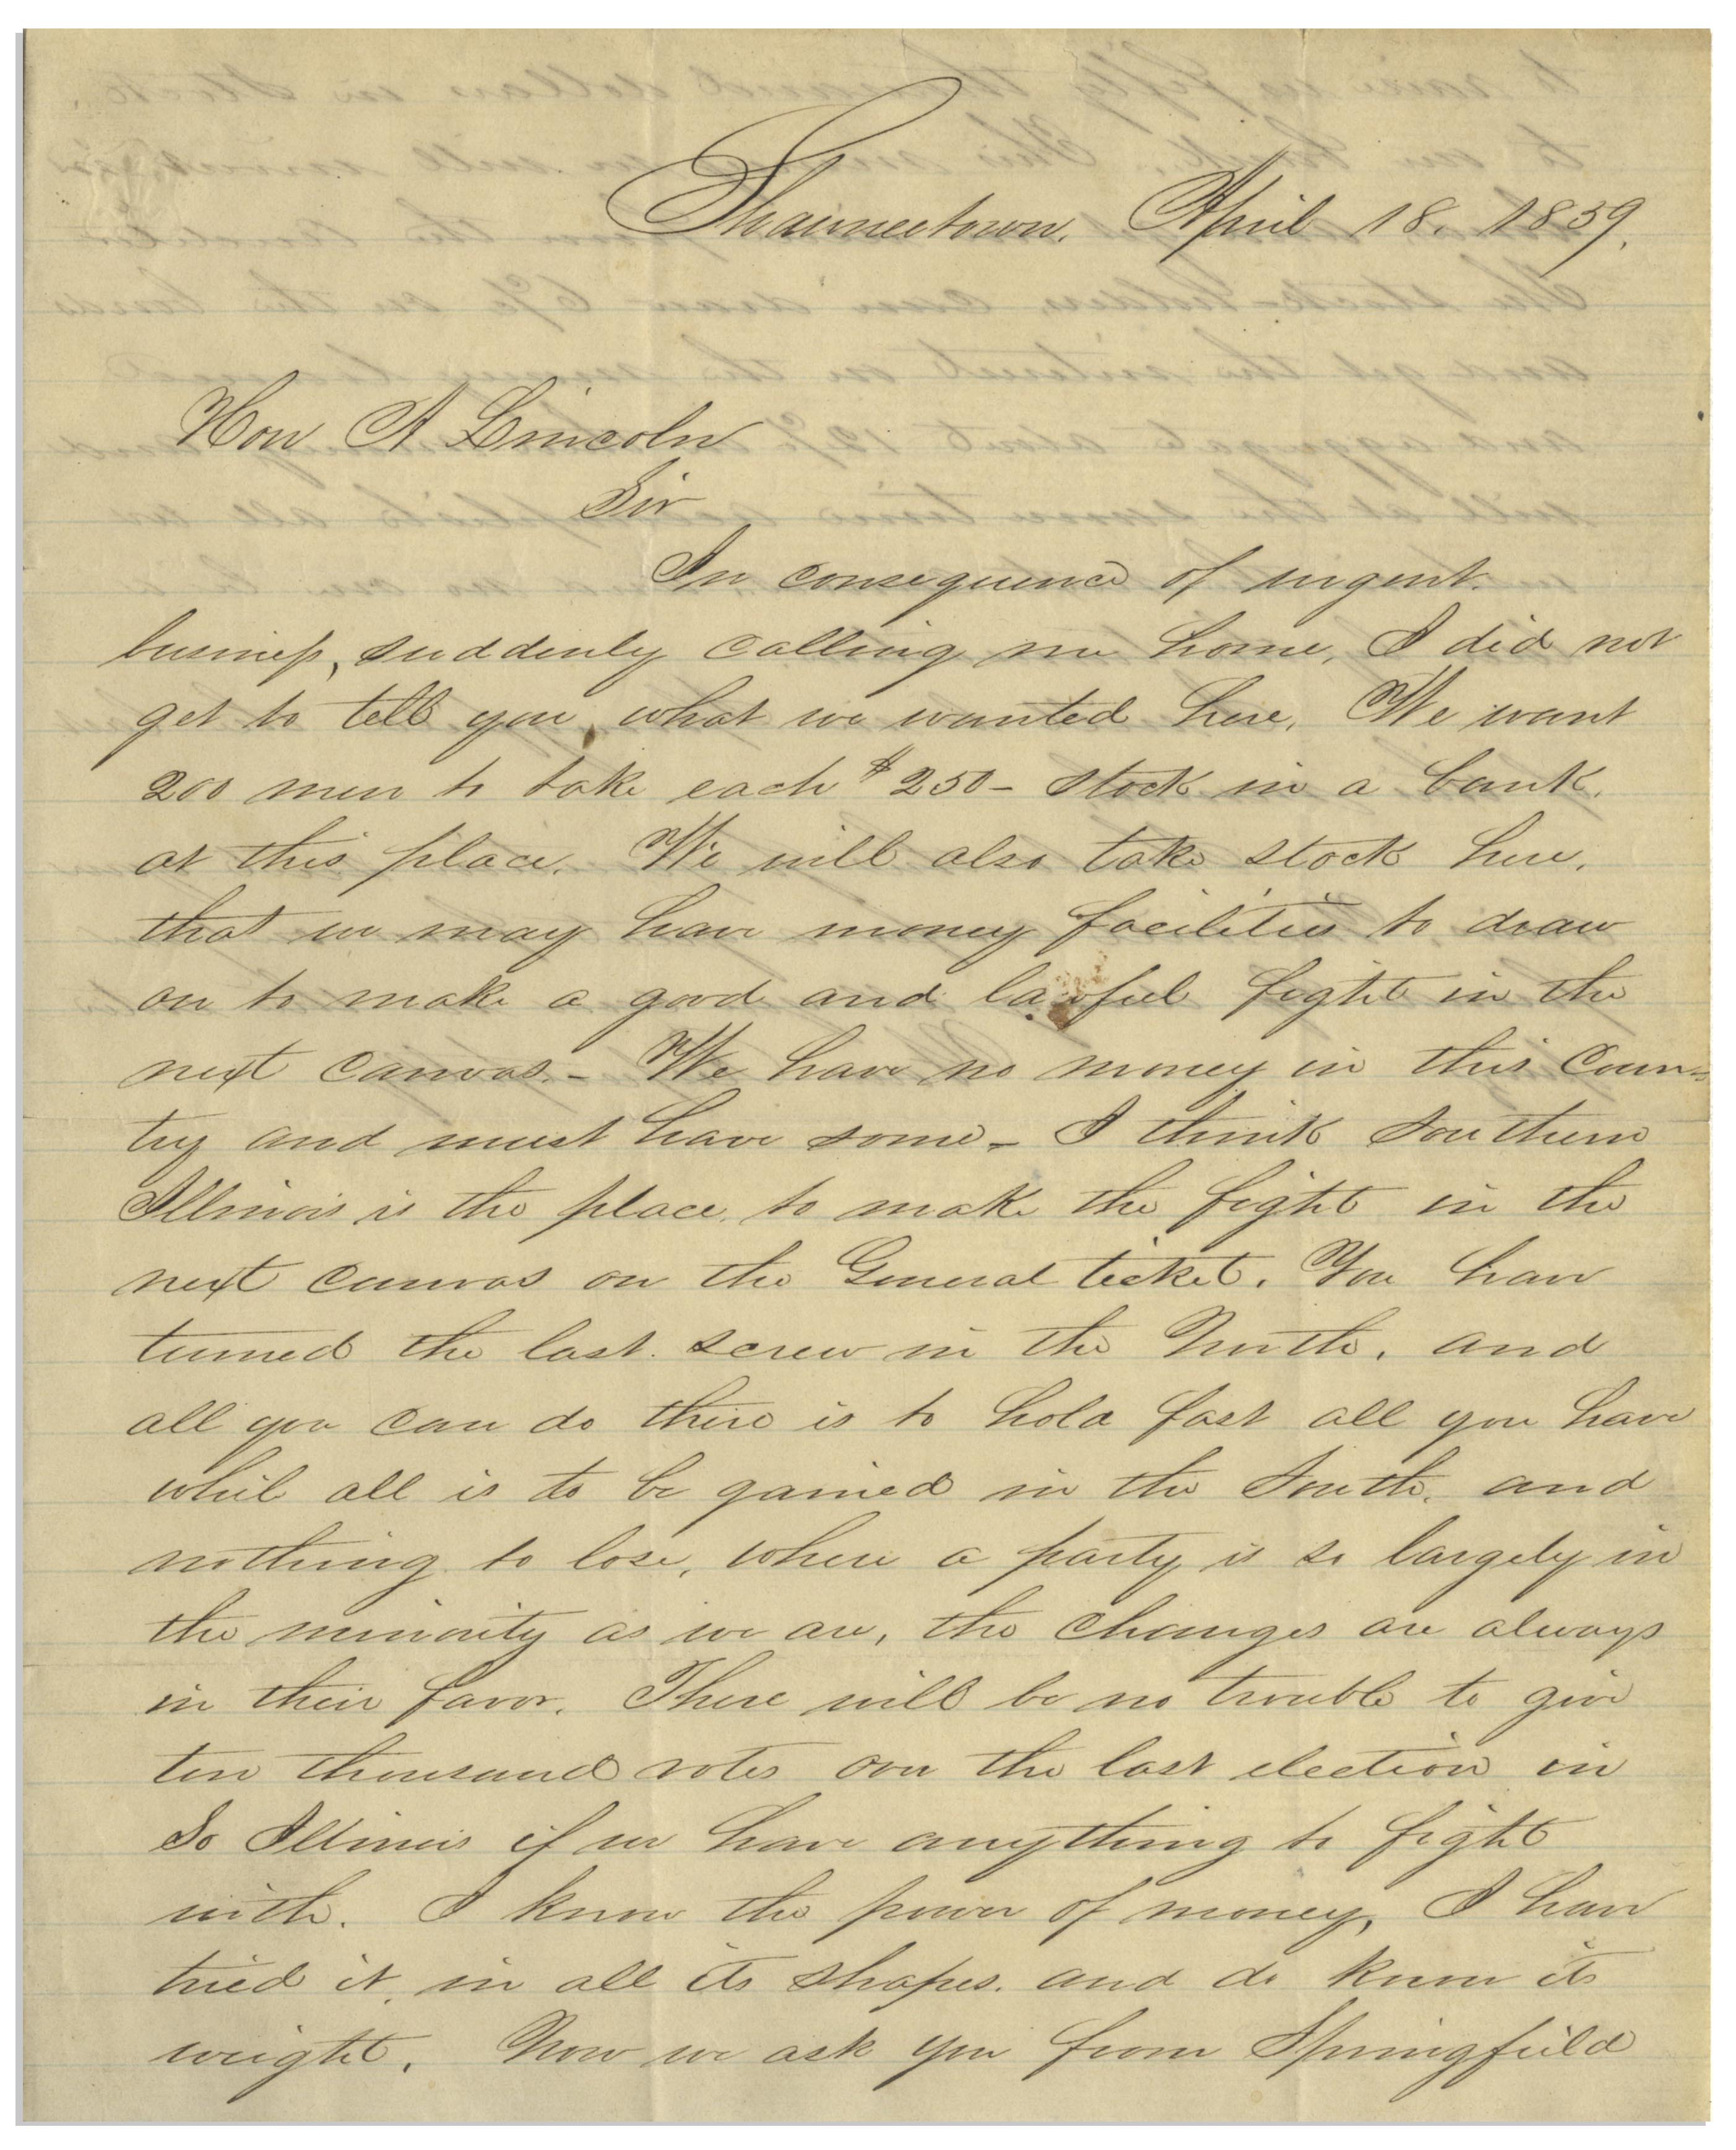 Shawneetown, April 18. 1859.
Hon A Lincoln
Sir
In consequence of urgent
business, suddenly calling me home, I did not
get to tell you, what we wanted here. We want
200 men to take each $250- stock in a bank.
at this place. We will also take stock here,
that we may have money facilities to draw
on to make a good and lawful fight in the
next canvas.- We have no money in this coun=
try and must have some- I think Southern
Illinois is the place, to make the fight in the
next canvas on the General ticket. You have
turned the last screw in the North, and
all you can do there is to hold fast all you have
while all is to be gained in the South, and
nothing to lose, where a party is so largely in
the minority as we are, the changes are always
in their favor. There will be no trouble to give
ten thousand votes on the last election in
So Illinois if we have anything to fight
with. I know the power of money, I have
tried it, in all its shapes, and do know its
weight. Now we ask you from Springfield